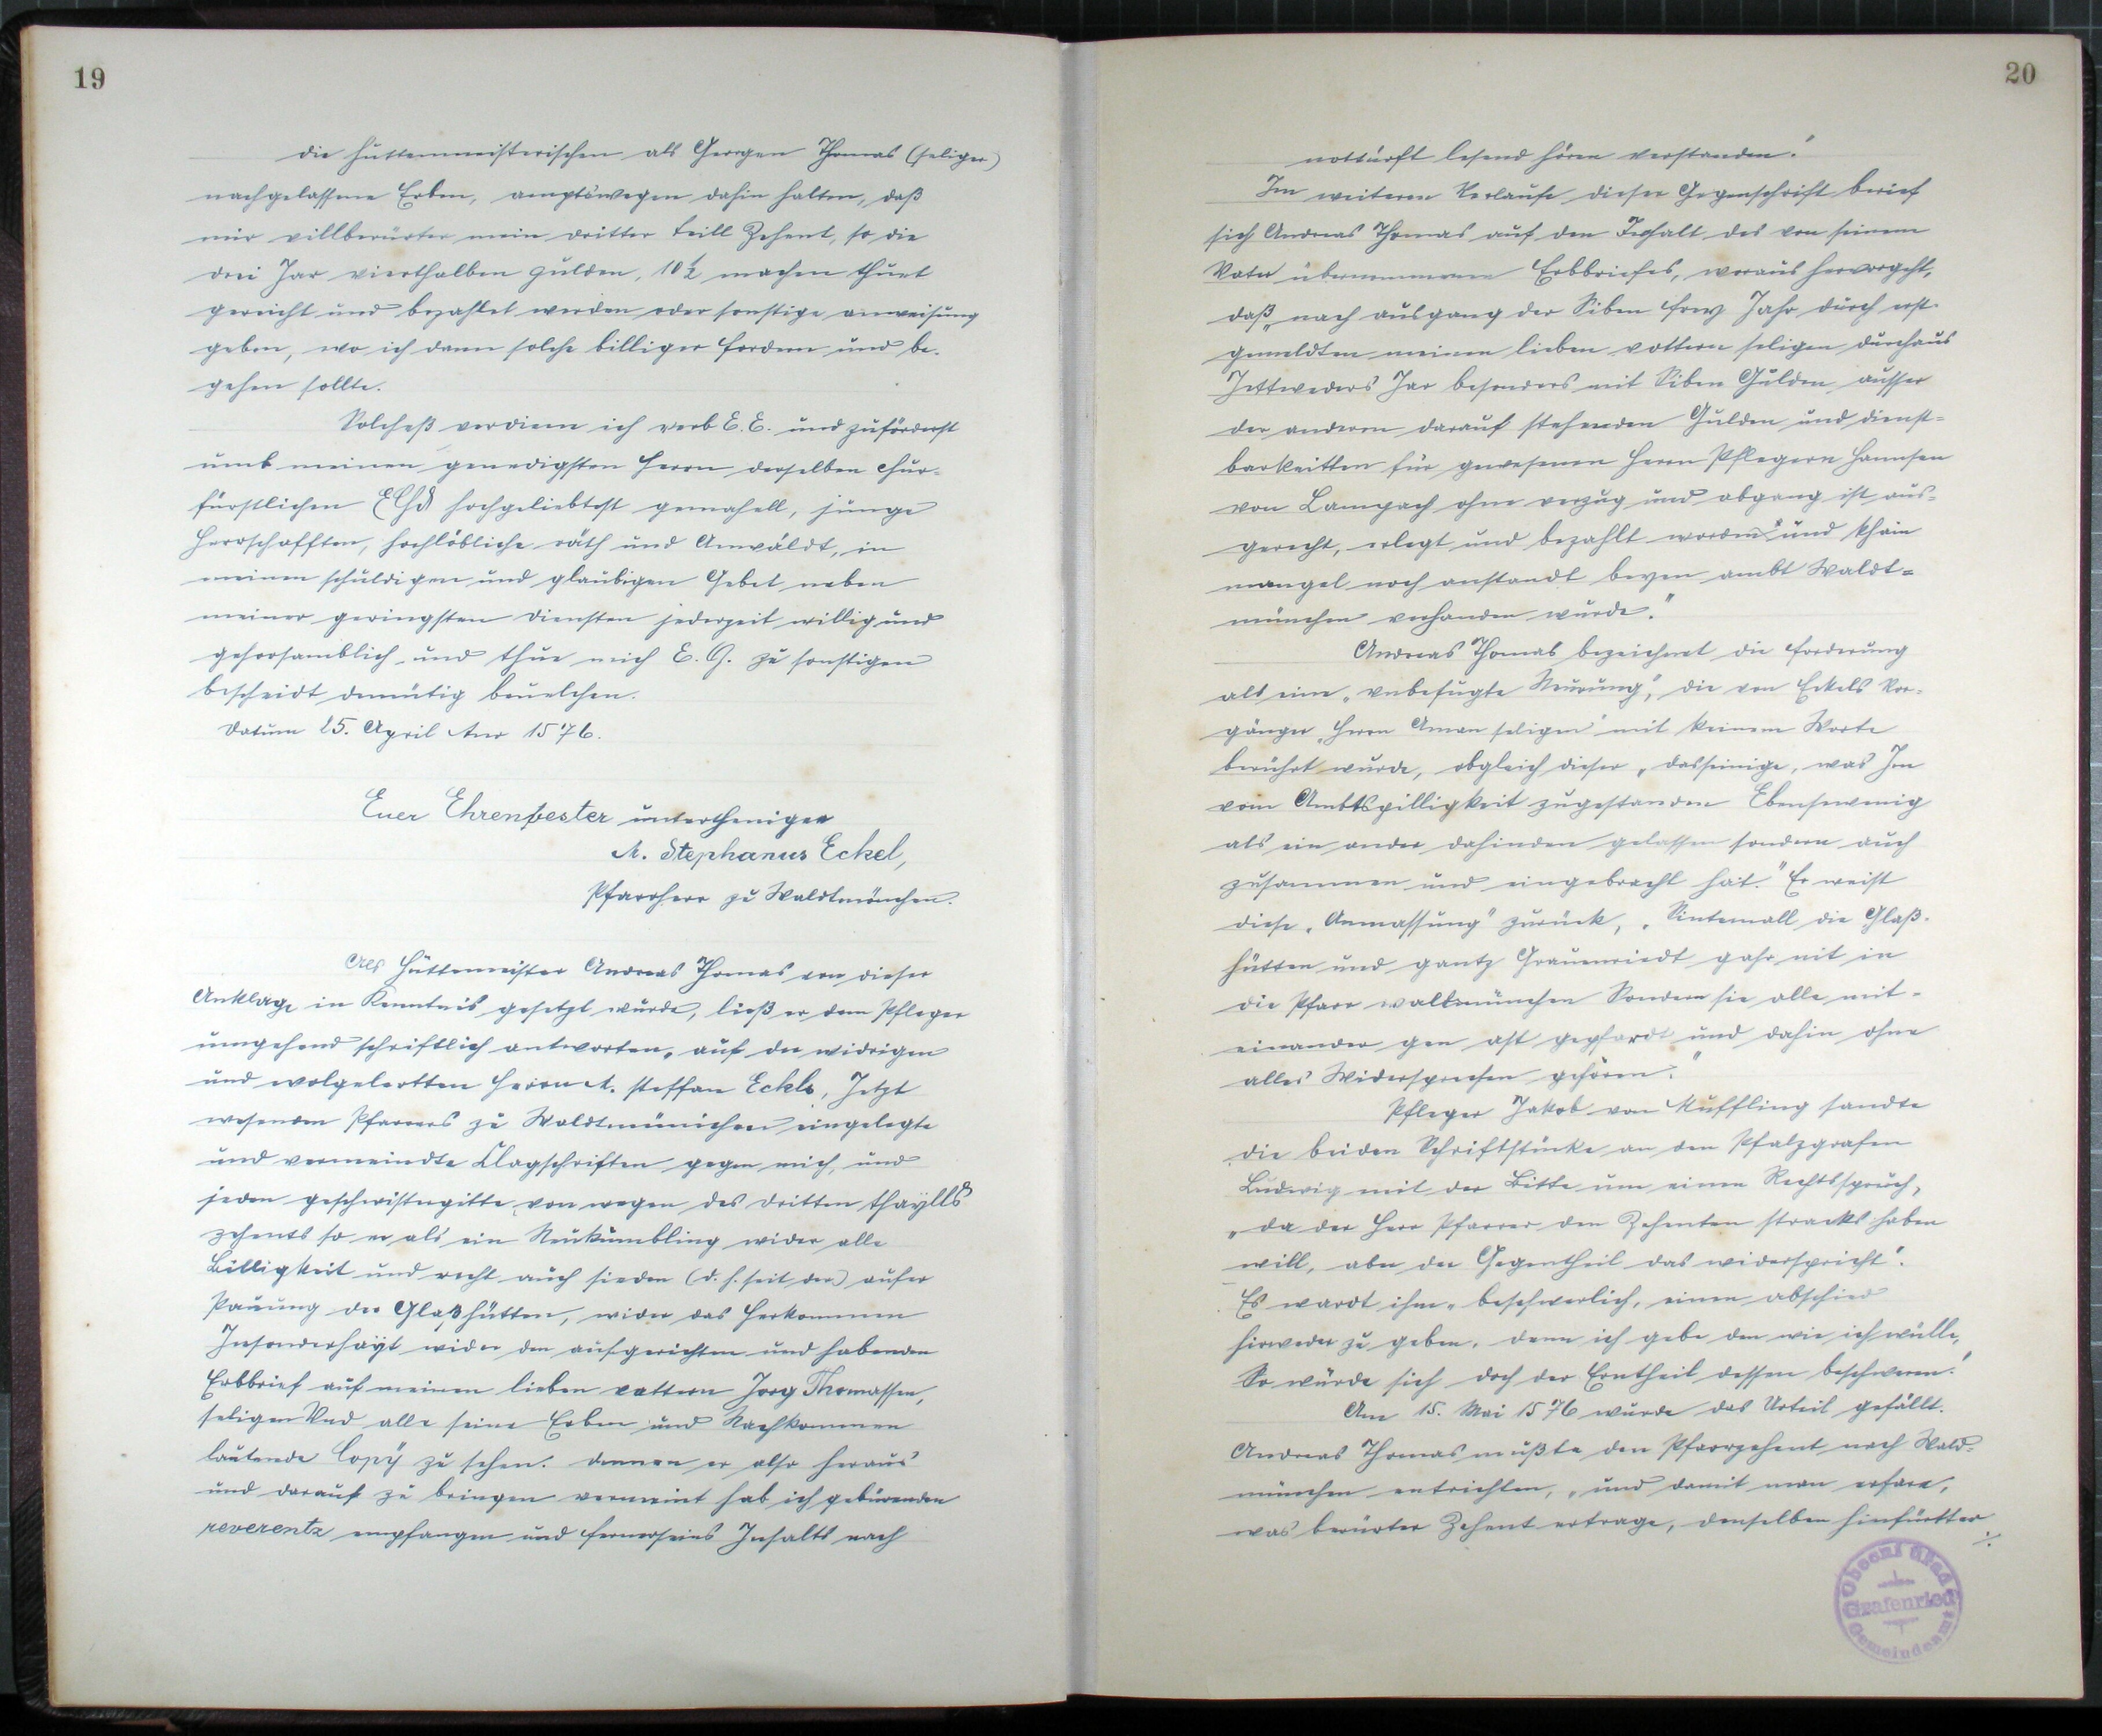 19
die Hüttenmeisterischen als Georgen Thomas (seliger)
nachgelassene Erben, amptswegen dahin halten, daß
mir villberürter mein dritter teill Zehent, so die
drei Jar vierthalben gulden, 10½ machen thuet
gereicht und bezahlet werden oder sonstige anweisung
geben, wo ich dann solche billiger fordern und be-
gehen sollte.
Solcheß verdiene ich verb E. E. und zuförderst
umb meinen genedigsten Herrn derselben chur-
fürstlichen hochgeliebtest gemahell, junge
Herrschafften, hochlöbliche räth und Anwäldt, in
meinen schuldigen und glaubigen Gebet neben
meiner geringsten diensten jederzeit willig und
gehorsamblich und thue mich E. G. zu sonstigen
bescheidt demütig beuelchen.
Datum 25. April Ano 1576.
Euer Ehrenfester unterthenigen
M. Stephanus Eckel,
Pfarrherr zu Waldtmönchen.
Als Hüttenmeister Andreas Thomas von dieser
Anklage in Kenntnis gesetzt wurde, ließ er dem Pfleger
umgehend schriftlich antworten „auf der widrigen
und wolgelertten Herrn M. steffan Eckls, Jetzt
wesenden Pfarrers zu Waldtmünichen eingelegte
und vermeindte Clagschriften gegen mich, und
jeden geschwistergitte von wegen des dritten thaylls
zehents so er als ein Neukümbling wider alle
Billigkeit und recht auch sieder (d. h. seit der) aufer
Pauung der Glaßhütten, wider das Herkommen
Insonderhayt wider den aufgerichten und habenden
Erbbrief auf meinen lieben vattern Jorg Thomassen,
seligen Vnd alle seine Erben und Nachkommen
lautende Copÿ zu sehen. dannen er also heraus
und darauf zu bringen vermeint hab ich gebürenden
reverentz empfangen und ferner seins Inhalts nach
20
notturft lesend hören verstanden."
Im weiteren Verlaufe dieser Gegenschrift berief
sich Andreas Thomas auf den Inhalt des von seinem
Vater übernommenen Erbbriefes, woraus hervorgeht,
daß „nach ausgang der Siben frey Jahr durch erst-
gemeldten meinen lieben vattern seligen durchaus
Jettweders Jar besonders mit Siben Gulden ausser
der anderen darauf stehenden Gulden und dienst-
barkeitten für gewesenen Herrn Pflegern Hannsen
von Lampach ohne verzug und abgang ist aus-
gericht, erlegt und bezahlt worden und khain
mangel noch anstandt beyen ambt Waldt-
münchen verhanden würde."
Andreas Thomas bezeichnet die Forderung
als eine „vnbefugte Neurung", die von Eckels Vor-
gänger „Herrn Aman seligen" mit keinem Worte
berührt wurde, obgleich dieser „dasseinige, was Im
vom Ambtspilligkeit zugestanden Ebensowenig
als ein ander dahinden gelassen sondern auch
zusammen und eingebracht hat." Er weist
diese „Anmassung" zurück, „Sintemall die Glaß-
hütten und gantz Grauenriedt gahr nit in
die Pfarr waltmünchen Sondern sie alle mit-
einander gen ast gepfardt und dahin ohne
alles Widersprechen gehören."
Pfleger Jakob von Muffling sandte
die beiden Schriftstücke an den Pfalzgrafen
Ludwig mit der Bitte um einen Rechtsspruch,
„da der Herr Pfarrer den Zehenten stracks haben
will, aber der Gegentheil das widerspricht".
Es wardt ihm „beschwerlich, einen abschied
hierweder zu geben, denn ich gebe den wie ich wülle,
So würde sich doch der Erntheil dessen beschweren."
Am 15. Mai 1576 wurde das Urteil gefällt.
Andreas Thomas mußte den Pfarrzehent nach Wald-
münchen entrichten, „und damit man erfare,
was berürter Zehent ertrage, denselben hinfürtter
./.
Obecní úřad
Grafenried
Gemeindeamt